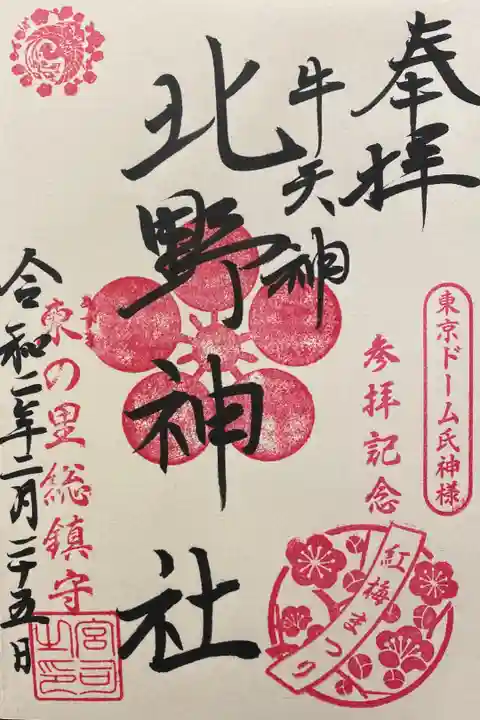 奉拝
牛天神
北野神社
令和二年二月二十五日
東京ドーム氏神様
参拝記念
紅梅まつり
東の里総鎮守
宮司之印